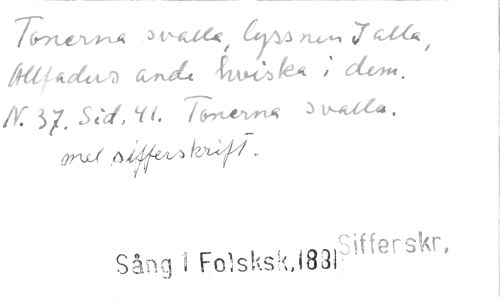 Tonerna svalla, lyssnen I alla,
Allfaders ande hviska i dem.
N. 37. Sid. 41. Tonerna svalla.
med sifferskrift.
Sång i Folsksk. 1881 Sifferskr.